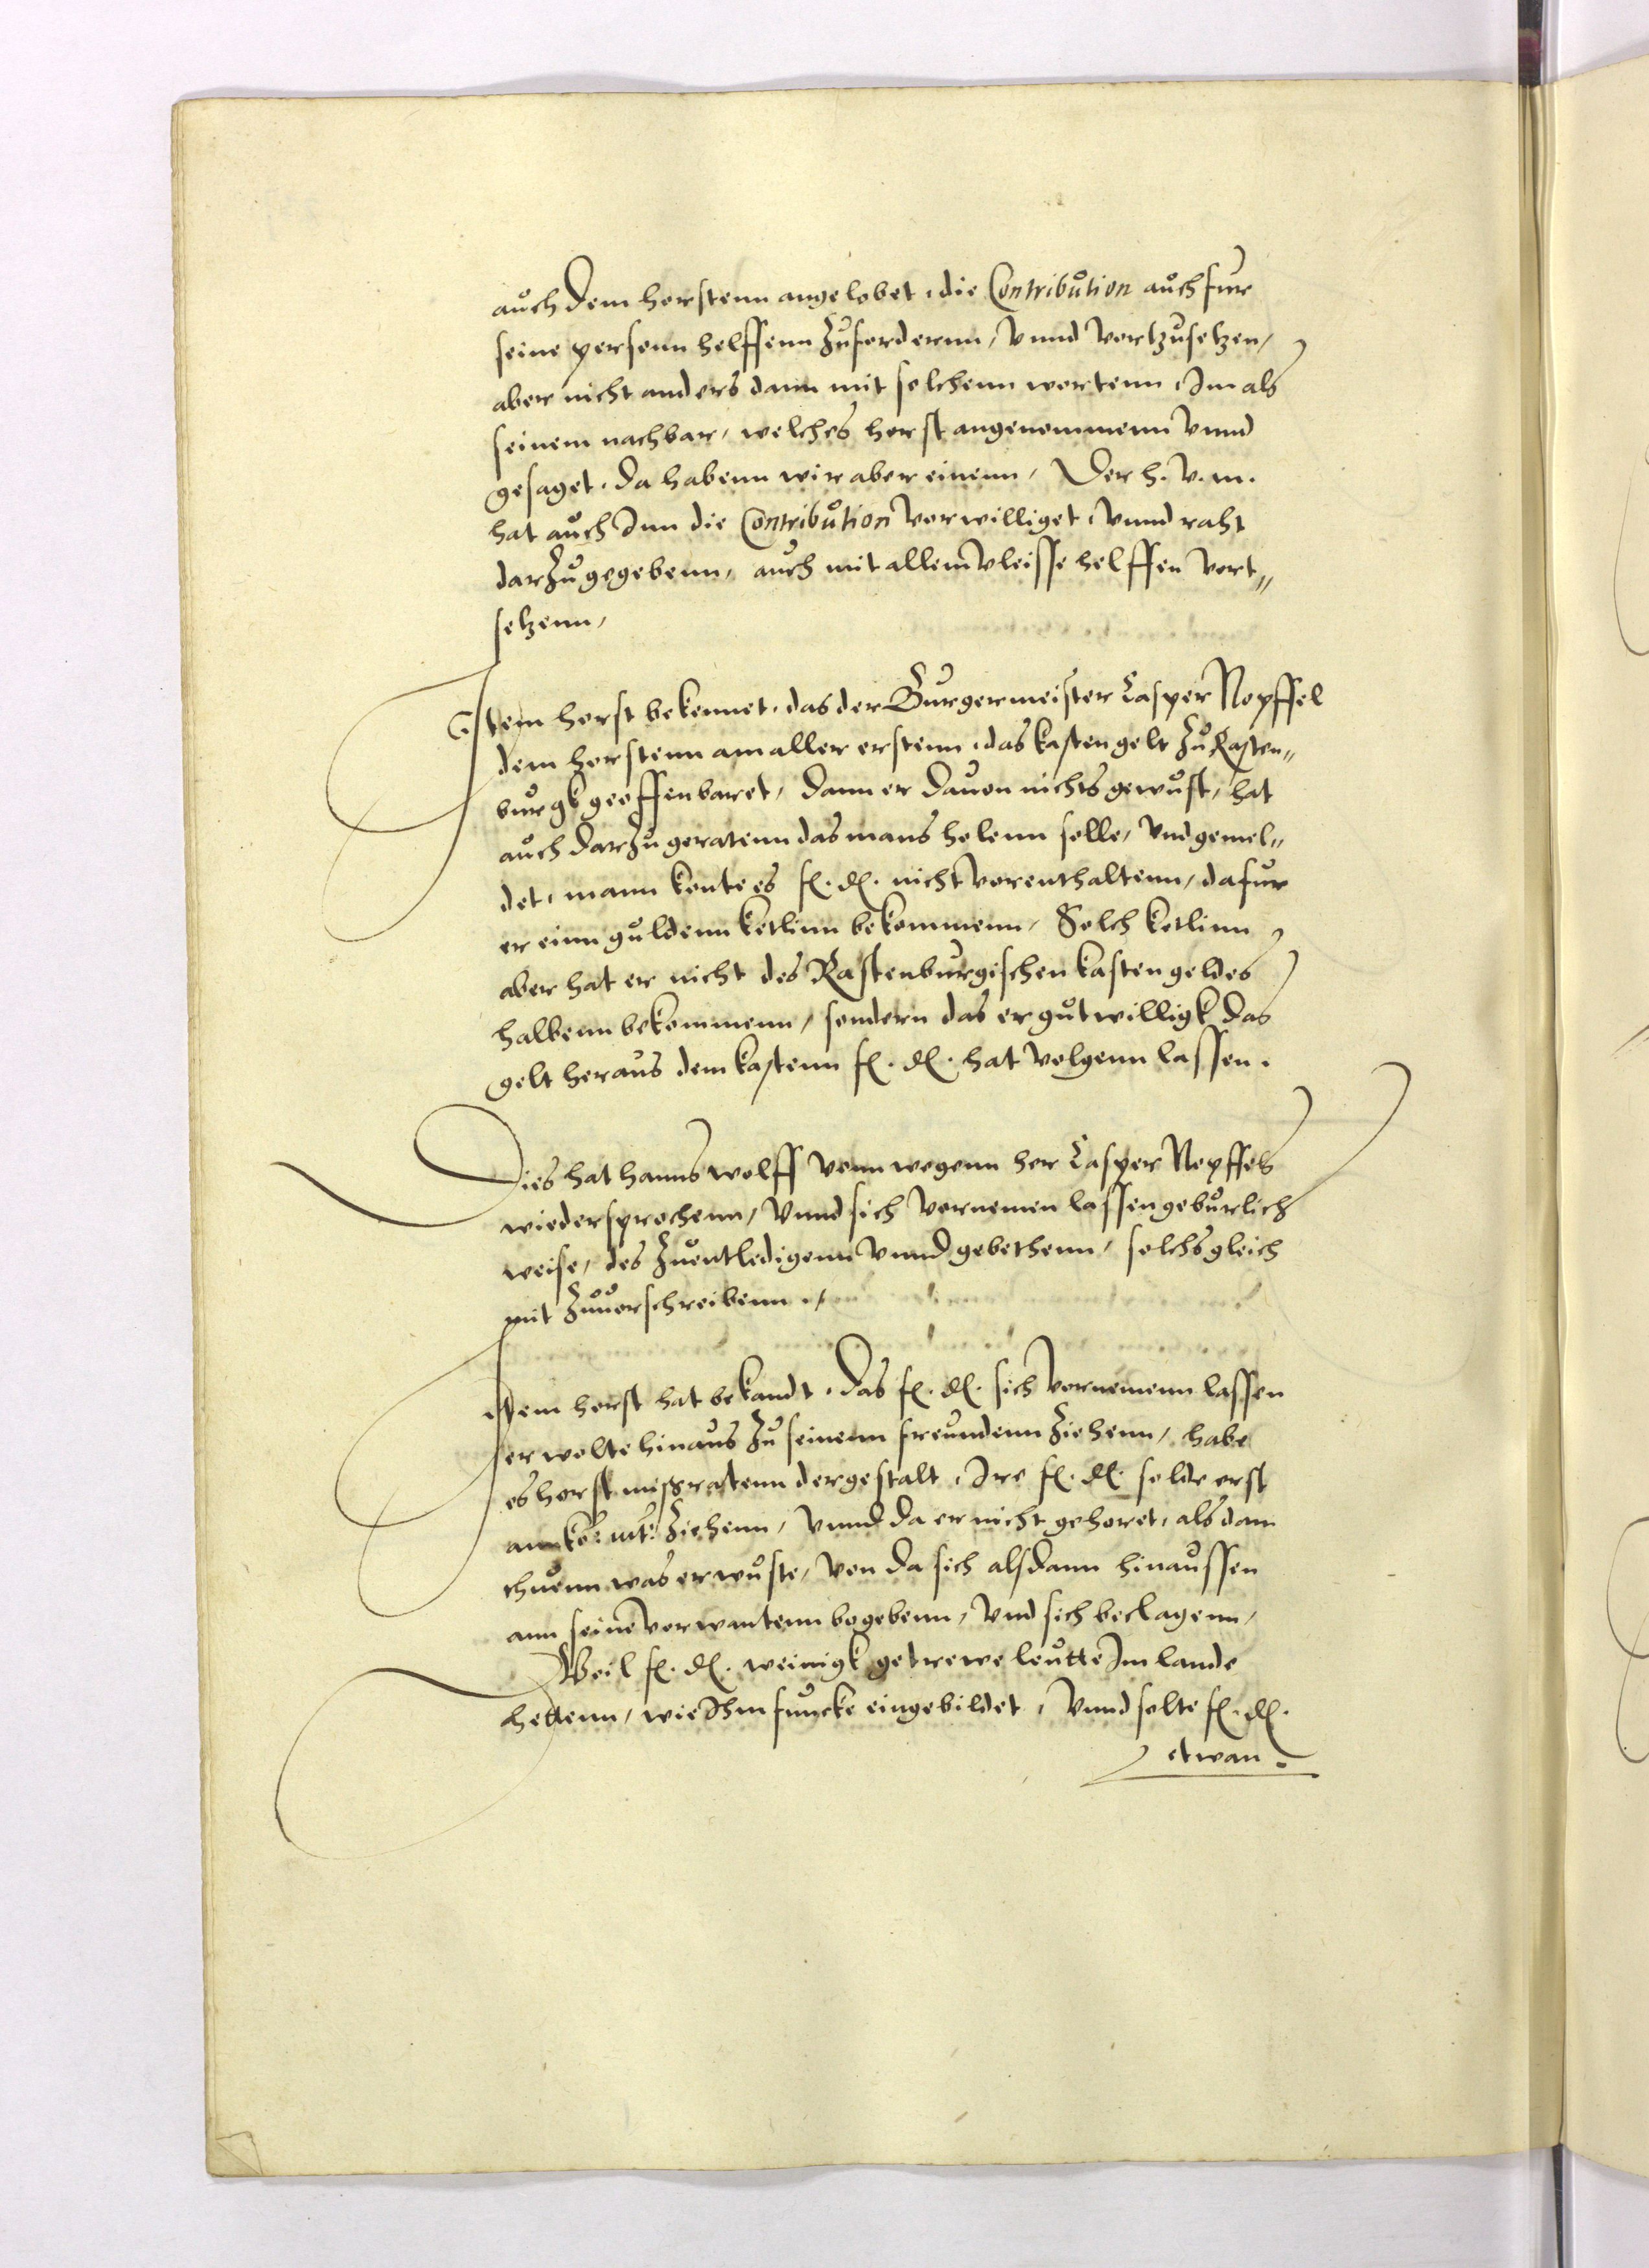 auch dem horstenn angelobet, die Contribution auch fur
seine personn helffenn zufordernn, vnnd vortzusetzen,
aber nicht anders dann mit solchenn wortenn, Im als
seinem nachbar, welches horst angenommenn vnnd
gesaget. da habenn wir aber einenn, Der h. v. m.
hat auch Inn die Contribution vorwilliget, vnnd raht
darzu gegebenn, auch mit allem vleisse helffen vort„
setzenn,
Item horst bekennet, das der Burgermeister Casper Nopffel
dem horstenn am aller erstenn, das kasten gelt zu Rasten„
burgk geoffenbaret, dann er dauon nichts gewust, hat
auch darzu geratenn das mans holenn solle, vnd gemel„
det, mann konte es f. d. nicht vorenthaltenn, dafur
er einn guldenn ketlinn bekommenn, Solch ketlinn
aber hat er nicht des Rastenburgischen kasten geldes
halbenn bekommenn, sondern das er gutwilligk das
gelt heraus dem kastenn f. d. hat volgenn lassen.
Dies hat hanns wolff vonn wegenn her Casper Nopffels
wiedersprochenn, vnnd sich vornemen lassen geburlich
weise, des zuentledigenn vnnd gebethenn, solchs gleich
mit zuuorschreibenn.
Item horst hat bekandt, das f. d. sich vornemenn lassen
er wolte hinaus zu seinenn freundenn ziehenn, habe
es horst missratenn dergestalt, Ire f. d. solde erst
ann ko: mt: ziehenn, vnnd da er nicht gehoret, als dan
thuenn was er wuste, von da sich alsdann hinaussen
ann seine vorwantenn begebenn, vnd sich beclagenn,
Weil f. d. weinigk getrewe leutte Im lande
hettenn, wie Ihm funcke eingebildet, vnnd solte f. d.
etwan